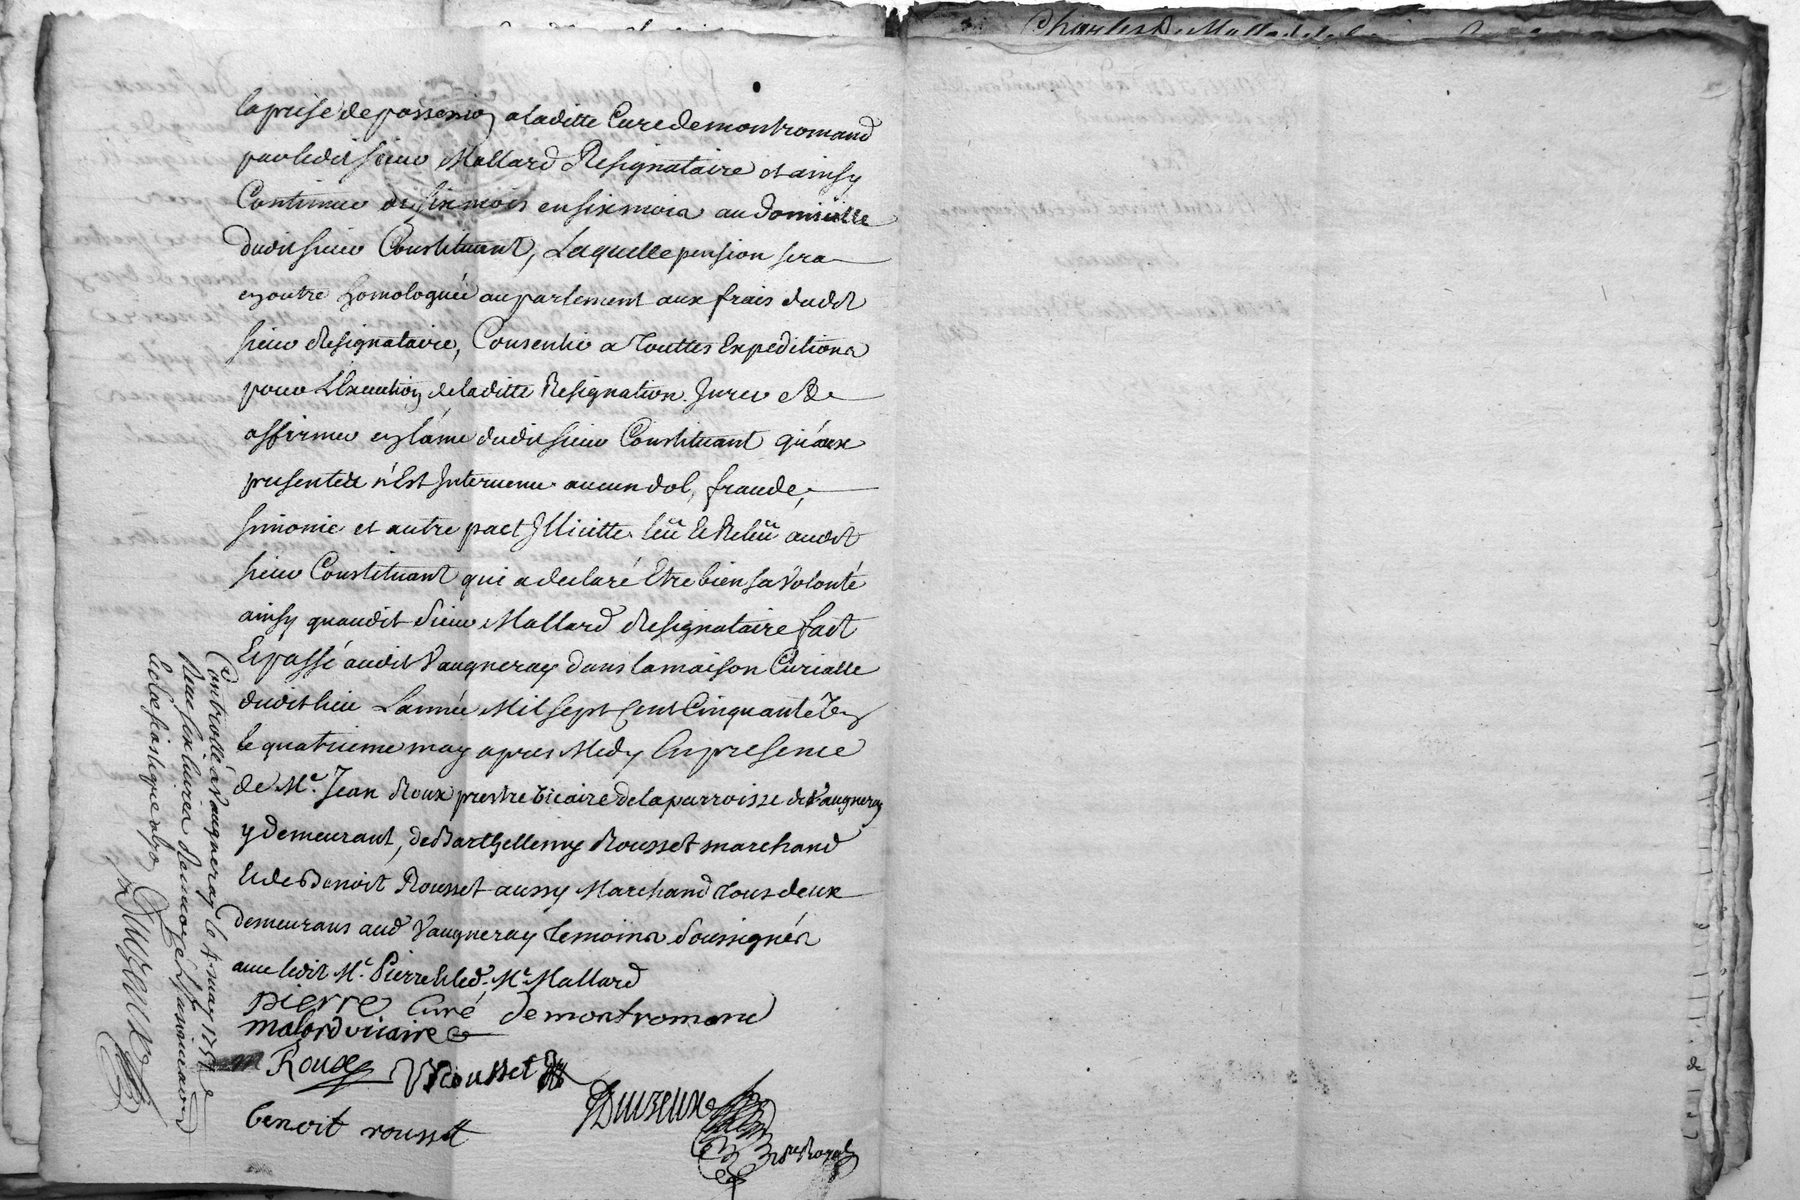 la prise de possession a laditte Cure de montromand
par ledit sieur Mallard Resignataire et ainsy
Continuer de six mois en six mois au domicille
dudit sieur Constituant, Laquelle pension sera
en outre homologuée au parlement aux frais dudit
sieur Resignataire, Consentir a touttes Expeditions
pour L'Execution de laditte Resignation. Jurer &
affirmer en l'ame dudit sieur Constituant qu'aux
presentes n'Est Intervenu aucun dol, fraude,
simonie et autre pact Illicitte. leü & Releü audit
sieur Constituant qui a declaré Etre bien sa Volonté
ainsy quaudit Sieur Mallard Resignataire fait
Et passé audit Vaugneray dans la maison Curialle
dudit lieu L'année Mil sept Cent Cinquante
le quatrieme may apres Midy En presence
de Mr. Jean Roux prestre Vicaire de la parroisse de Vaugneray
y demeurant, de Barthellemy Rousset marchand
Et de Benoit Rousset aussy Marchand tous deux
demeurans aud Vaugneray temoins Soussignés
avec ledit Mr. Pierre & led. Mr Mallard
pierre Curé de montromand
malard vicaire
Roux Rousset
benoit rousset
Duzeux
Nre Royal
Controllé a Vaugneray le 4 may
Reçu six livres douze